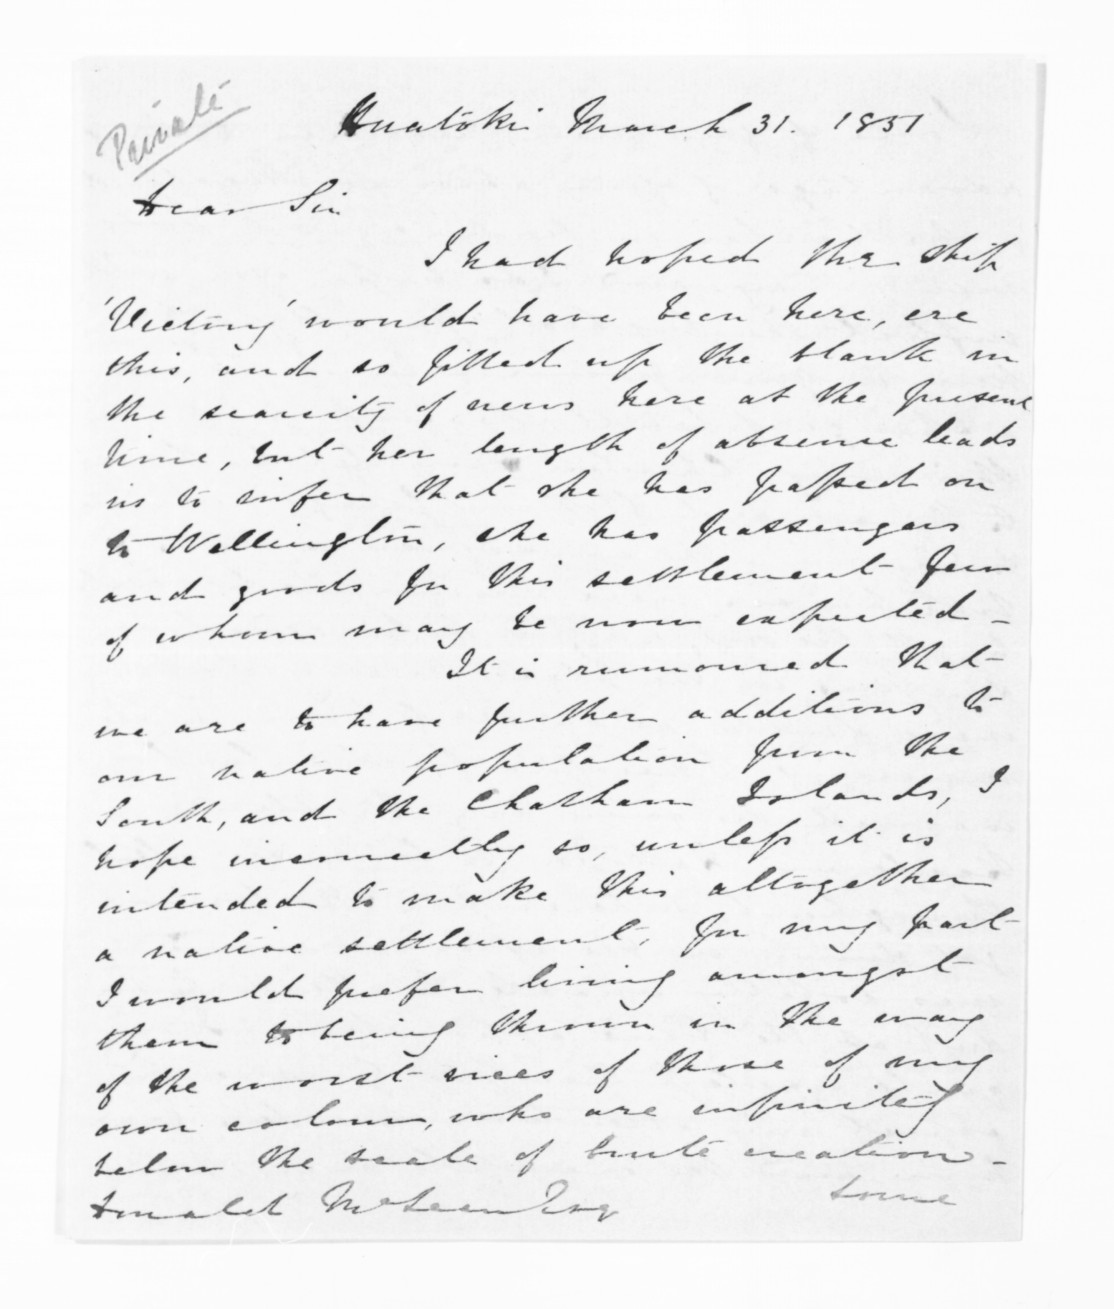 Private
Huatoki March 31. 1851
Dear Sir
I had hoped the ship
'Victory' would have been here, ere
this, and so filled up the blank in
the scarcity of news here at the present
time, but her length of absence leads
us to infer that she has passed on
to Wellington, she has passengers
and goods for this settlement few
of whom may be now expected -
It is rumoured that
we are to have further additions to
our native population from the
South, and the Chatham Islands, I
hope incorrectly so, unless it is
intended to make this altogether
a native settlement, for my part
I would prefer living amongst
them to being thrown in the way
of the worst vices of those of my
own colour, who are infinitely
below the scale of brute creation -
some
Donald McLean Esq